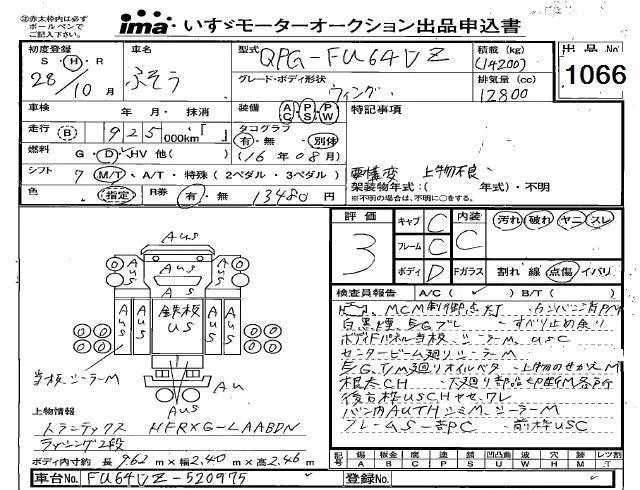 ㊟赤太枠内は必ず
ボールペンで
ご記入下さい。
ima いすゞモーターオークション出品申込書
初度登録 車名 型式 QPG-FU64VZ 積載 (kg) 出品No
S・H・R 28/10月 ふそう (14200) 1066
グレード・ボディ形状 ウィング 排気量 (cc) 12800
車検 年 月・抹消 装備 AC PS PW 特記事項
走行 (B) 925 000km「 」 タコグラフ 有・無・別体
燃料 G・D・HV 他( ) (16年08月)
シフト 7 M/T・A/T・特殊 (2ペダル・3ペダル) 要構変 上物不良
色 (指定) R券 有・無 13480円 架装物年式:( 年式)・不明
※不明の場合は、不明に○をする。
評価 3 キャブ C 内装 C 汚れ・破れ・ヤニ・スレ
フレーム C
ボディ D Fガラス 割れ 線 点傷 イバリ
検査員報告 A/C( ) B/T( )
MCM制御点灯
白黒煙、E/Gブレ すべり止め余り
ボデドパネル当板、シーラー、USC
センタービーム廻りシーラーM
E/G、T/M廻りオイルベタ 上物のせかえM
根太CH 下廻り部品
後方枠USCH
バン内AUTHシミM、シーラーM
フレームS一部PC 前枠USC
AUS
AUS
AUS
AUS
AUS
AUS
AUS
鉄板
US
当板シーラーM
AU
AUS
上物情報
トランテックス HFRXG-LAABDN
ラッシング2段
ボディ内寸約 長 9.62 m×幅 2.40 m×高 2.46 m
記号 傷 A 板金 B 腐 C 塗 P 錆 S 凹凸曲 U 波 W 穴 H 汚 M レツ割 T
車台No. FU64VZ-520975 登録No.